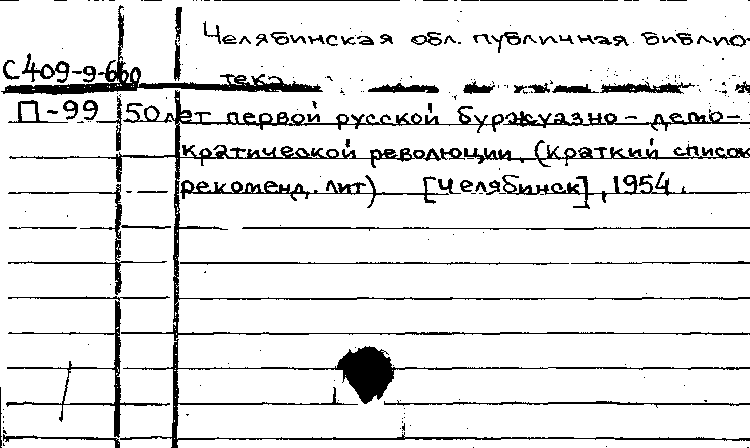 Челябинская обл. публичная библио-
С409-9-660 тека
П-99 50 лет первой русской буржуазно-демо-
кратической революции. (Краткий список
рекоменд. лит) [Челябинск], 1954.